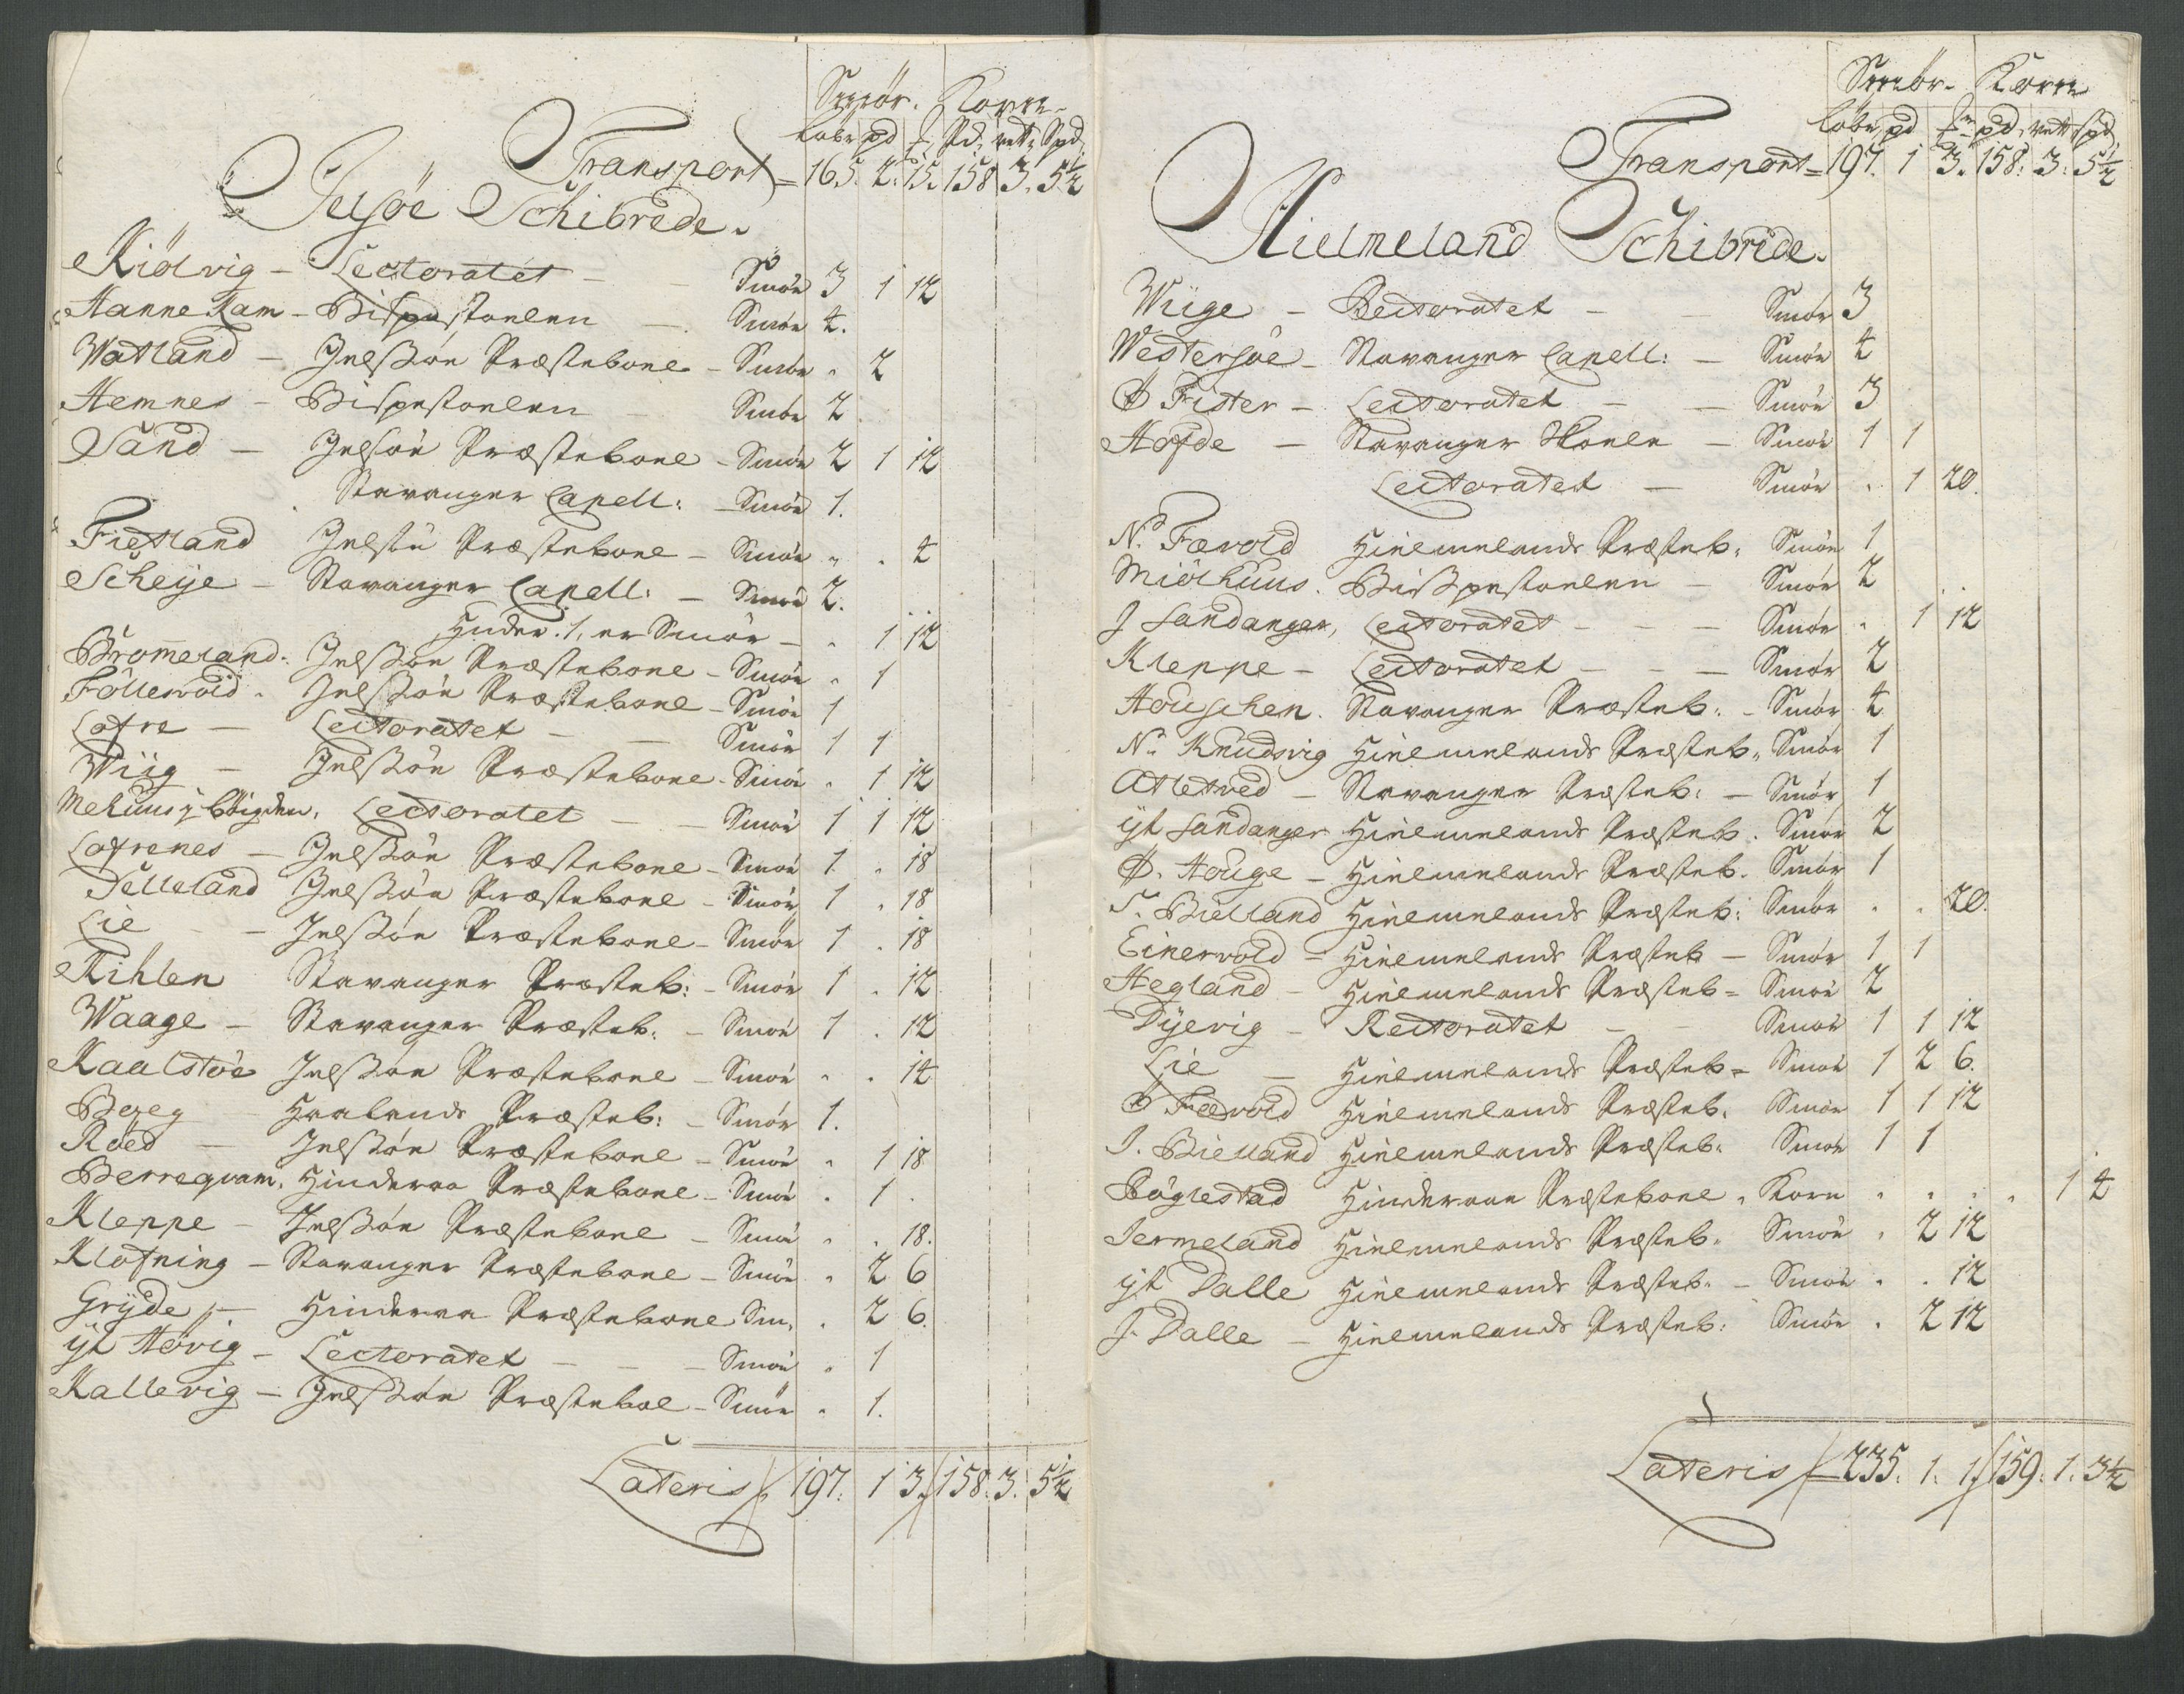 Smör. Korn
Löbr pd ℔ Pd, vett, Spd
Transport = 165. 2. 15. 158 3. 5½
Jelsöe Schibrede.
Kiölvig – Lectoratet – Smör 3 1 12
Hanne Kam – Bispestoelen – Smör 4.
Watland – Jelsöe Præstebone – Smör " 2
Hemnes – Bispestoelen – Smör 2
Sand – Jelsöe Præstebone – Smör 2 1 12
Stavanger Capell: – Smör 1.
Fietland Jelsöe Præstebone – Smör " . 4
Scheije – Stavanger Capell: – Smör 2.
Huder. 1, er Smör – " 1 12
Bromeland. Jelsöe Præstebone – Smör " 1
Föllewold. Jelsöe Præstebone – Smör 1
Lofre – Lectoratet – Smör 1 1
Wiig – Jelsöe Præstebone – Smör " 1 12
Mehuus j böigden, Lectoratet – Smör 1 1 12
Lofrenes – Jelsöe Præstebone – Smör 1 . 18
Selleland Jelsöe Præstebone – Smör 1 . 18
Lie – Jelsöe Præstebone – Smör 1 . 18
Kihlen Stavanger Præsteb: – Smör 1 . 12
Waage – Stavanger Præsteb: – Smör 1 . 12
Kaalstöe Jelsöe Præstebone – Smör " . 14
Bezeg Haalands Præsteb: – Smör 1.
Röed – Jelsöe Præstebone – Smör " 1 18
Berrequam, Hinderaa Præstebone – Smör . 1 .
Kleppe – Jelsöe Præstebone – Smör " . 18.
Klofning – Stavanger Præstebone – Smör " 2 6
Grÿde – Hinderaa Præstebone Sm, . 2 6.
ÿt Høvig – Lectoratet – Smör " 1
Kallevig – Jelsöe Præstebol – Smör " 1.
Lateris 197. 1 3. 158. 3. 5½
Smör. Korn
Löbr pd ℔ pd, vett spd
Transport = 197. 1 3. 158. 3. 5½
Hielmeland Schibride.
Wiige – Rectoratet – Smör 3
Westersöe – Stavanger Capell: – Smör 4
Ø Fister – Lectoratet – Smör 3
Hofde – Stavanger Skoele – Smör 1 1
Lectoratet – Smör " 1 20.
N. Færold Hielmelands Præsteb, Smör 1
Miölhuus. Bispestoelen – Smör 2
J Sandanger, Lectoratet – Smör " 1 12
Kleppe – Lectoratet – Smör 2
Houschen. Stavanger Præsteb: – Smör 4
N. Knudsvig Hielmelands Præsteb, Smör 1
Atletved – Stavanger Præsteb: – Smör 1
ÿt Sandanger Hielmelands Præsteb. Smör 2
Ø. Houge – Hielmelands Præsteb. Smör 1
S. Bielland Hielmelands Præsteb: Smör . . 20.
Einervold – Hielmelands Præsteb – Smör 1 1
Hegland – Hielmelands Præsteb – Smör 2
Dÿevig – Rectoratet – Smör 1 1 12
Lie – Hielmelands Præsteb – Smör 1 2 6.
Ø Færvold Hielmelands Præsteb. Smör 1 1 12
I. Bielland Hielmelands Præsteb: Smör 1 1
Böglestad Hinderaae Præstebone, Korn " " . " 1 4
Jermeland Hielmelands Præsteb. Smör . 2 12
ÿt Dalle Hielmelands Præsteb. – Smör " . 12
J. Dalle – Hielmelands Præsteb: Smör . 2 12
Lateris 235. 1. 1. 159. 1. 3½